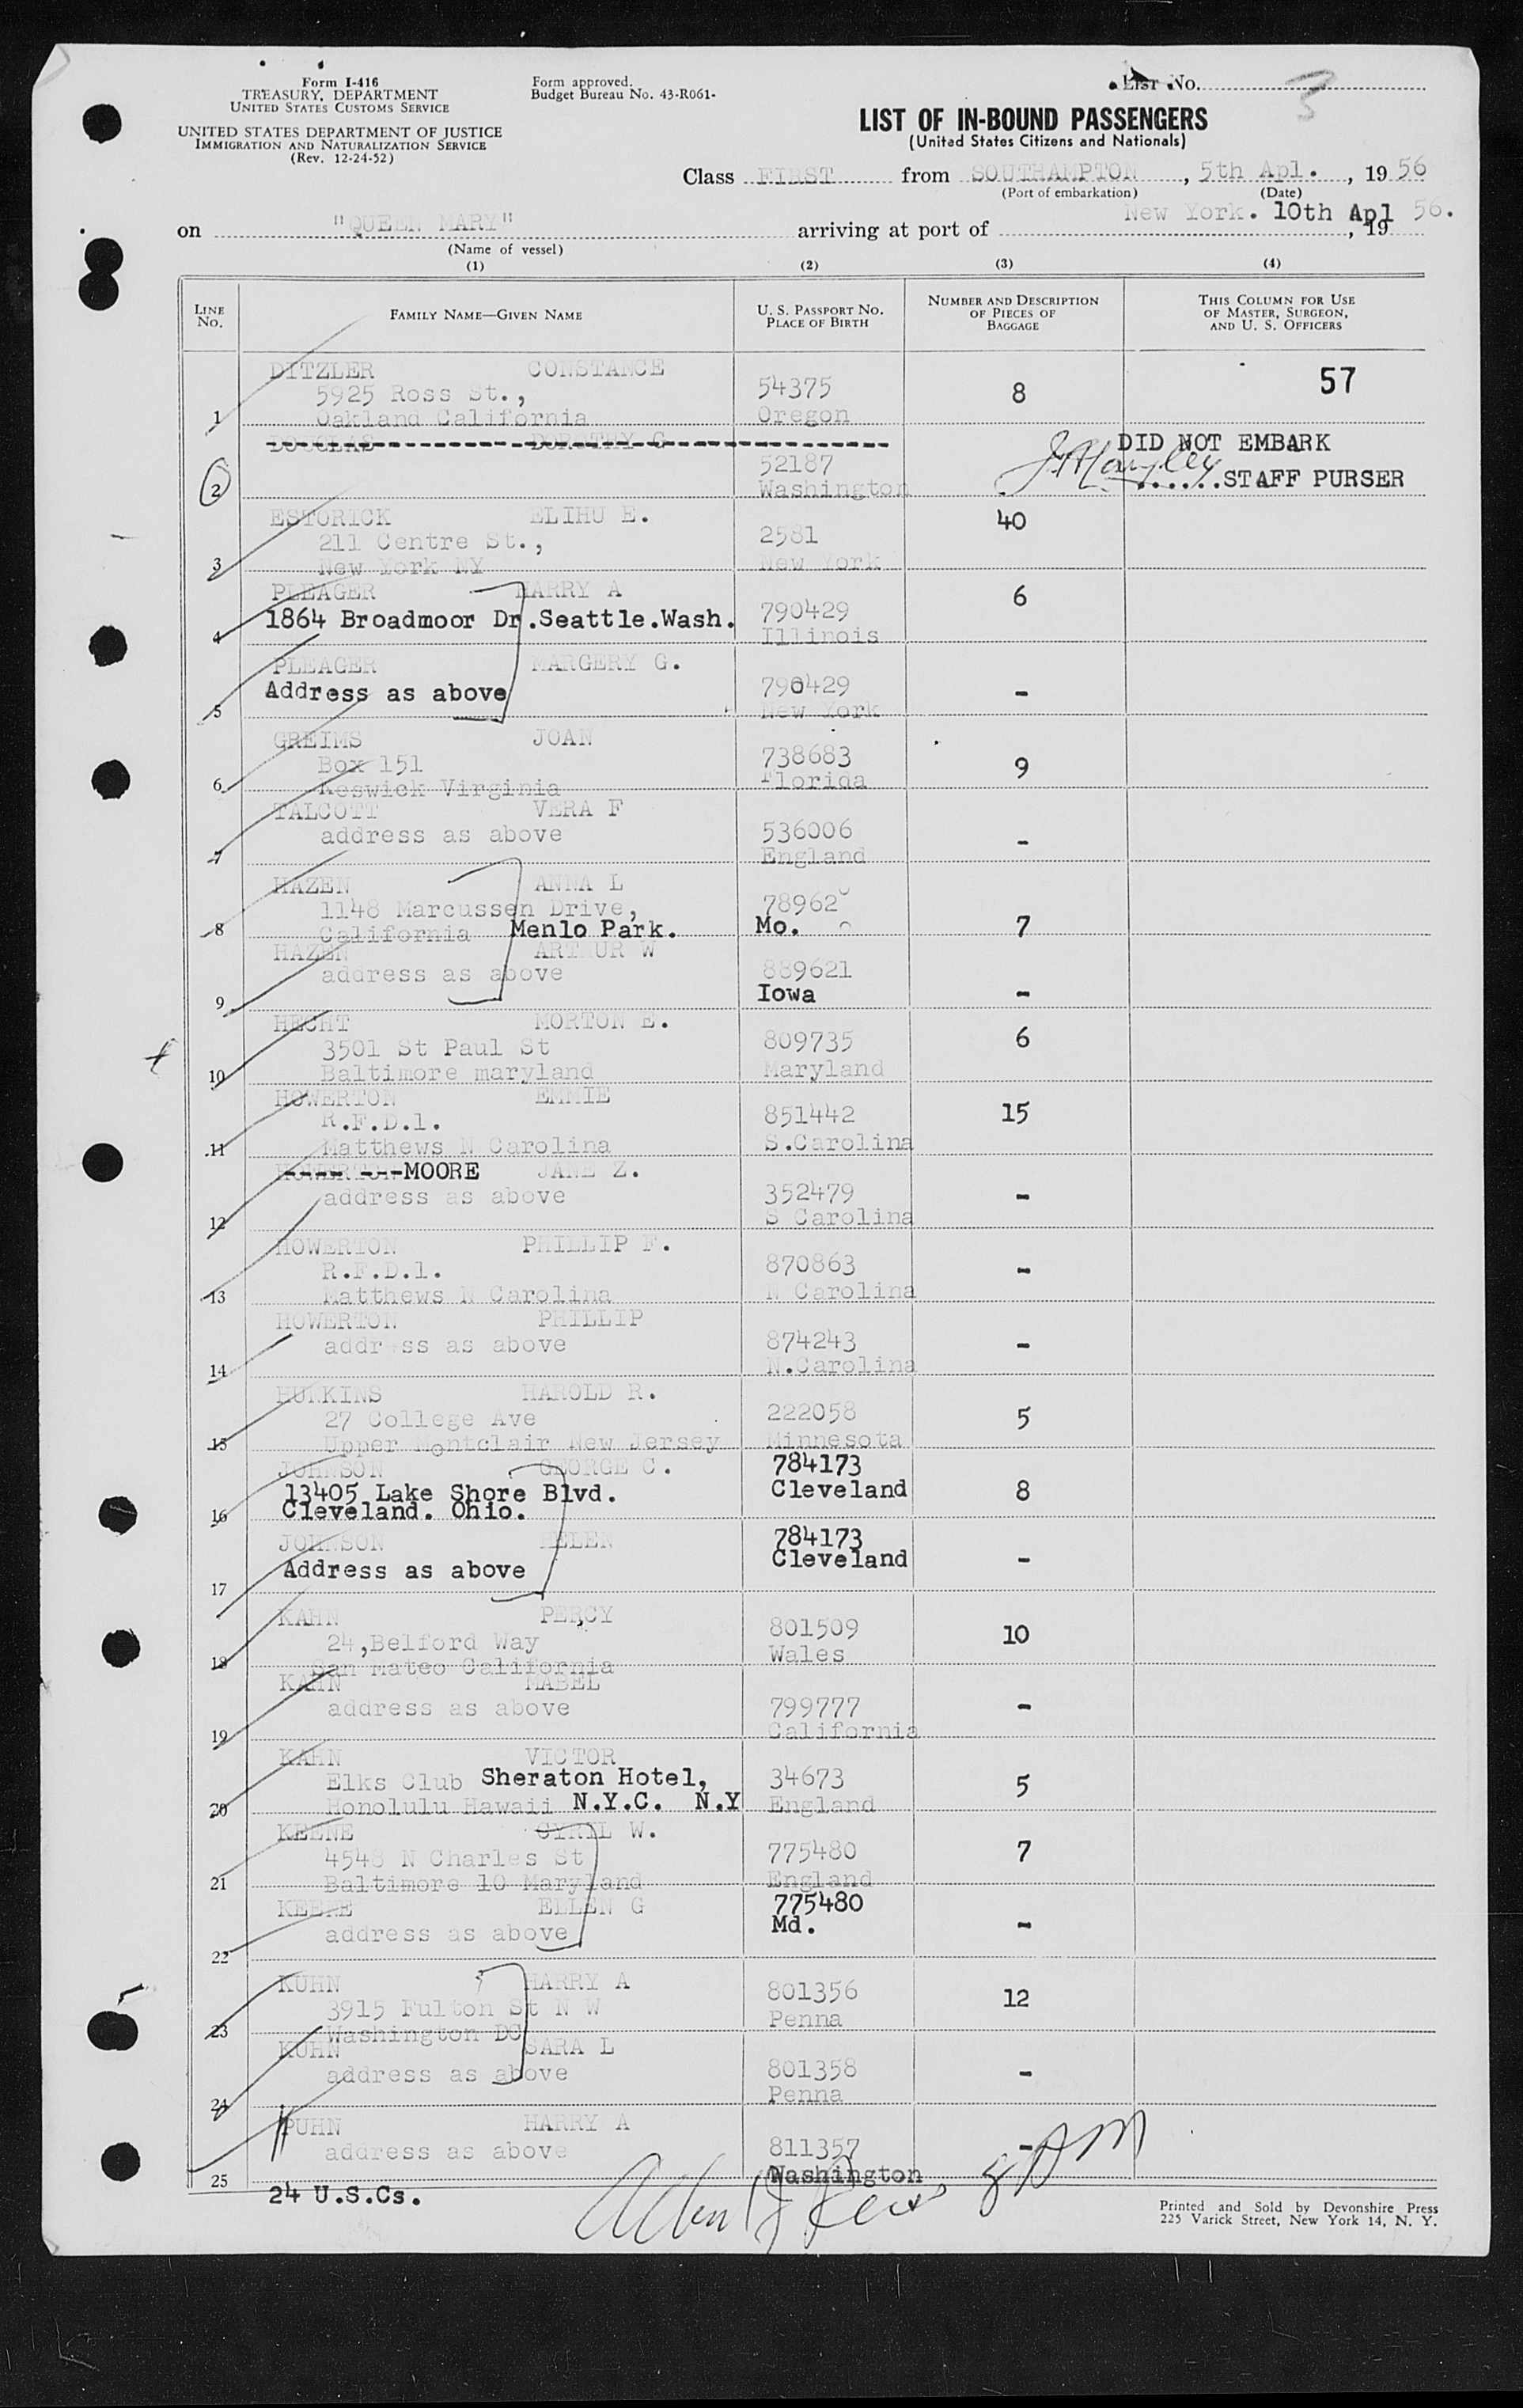 Form I-416
TREASURY DEPARTMENT
UNITED STATES CUSTOMS SERVICE
UNITED STATES DEPARTMENT OF JUSTICE
IMMIGRATION AND NATURALIZATION SERVICE
(Rev. 12-24-52)
Form approved.
Budget Bureau No. 43-R061-
List No. 3
LIST OF IN-BOUND PASSENGERS
(United States Citizens and Nationals)
Class FIRST from SOUTHAMPTON, 5th Apl., 19 56
(Port of embarkation) (Date)
on "QUEEN MARY" arriving at port of New York. 10th Apl, 19 56.
(Name of vessel)
(1) (2) (3) (4)
LINE No. FAMILY NAME—GIVEN NAME U. S. PASSPORT NO. PLACE OF BIRTH NUMBER AND DESCRIPTION OF PIECES OF BAGGAGE THIS COLUMN FOR USE OF MASTER, SURGEON, AND U. S. OFFICERS
DITZLER CONSTANCE 57
5925 Ross St., 54375 8
1 Oakland California Oregon
DOUGLAS DOROTHY G DID NOT EMBARK
52187
2 Washington ......STAFF PURSER
ESTORICK ELIHU E. 40
211 Centre St., 2581
3 New York NY New York
PLEAGER HARRY A 6
1864 Broadmoor Dr.Seattle.Wash. 790429
4 Illinois
PLEAGER MARGERY G.
Address as above 790429 -
5 New York
GREIMS JOAN
Box 151 738683 9
6 Keswick Virginia Florida
TALCOTT VERA F
address as above 536006 -
7 England
HAZEN ANNA L
1148 Marcussen Drive, 78962
8 California Menlo Park. Mo. 7
HAZEN ARTHUR W
address as above 889621
9 Iowa -
HECHT MORTON E.
3501 St Paul St 809735 6
10 Baltimore maryland Maryland
HOWERTON EMMIE
R.F.D.1. 851442 15
11 Matthews N Carolina S.Carolina
HOWERTON MOORE JANE Z.
address as above 352479 -
12 S Carolina
HOWERTON PHILLIP F.
R.F.D.1. 870863 -
13 Matthews N Carolina N Carolina
HOWERTON PHILLIP
address as above 874243 -
14 N.Carolina
HUNKINS HAROLD R.
27 College Ave 222058 5
15 Upper Montclair New Jersey Minnesota
JOHNSON GEORGE C. 784173
13405 Lake Shore Blvd. Cleveland 8
16 Cleveland. Ohio.
JOHNSON HELEN 784173
Address as above Cleveland -
17
KAHN PERCY
24,Belford Way 801509 10
18 San Mateo California Wales
KAHN MABEL
address as above 799777 -
19 California
KAHN VICTOR
Elks Club Sheraton Hotel, 34673 5
20 Honolulu Hawaii N.Y.C. N.Y England
KEENE CYRIL W.
4548 N Charles St 775480 7
21 Baltimore 10 Maryland England
KEENE ELLEN G 775480
address as above Md. -
22
KUHN HARRY A
3915 Fulton St N W 801356 12
23 Washington DC Penna
KUHN SARA L
address as above 801358 -
24 Penna
PUHN HARRY A
address as above 811357 -
25 Washington
24 U.S.Cs.
Printed and Sold by Devonshire Press
225 Varick Street, New York 14, N. Y.